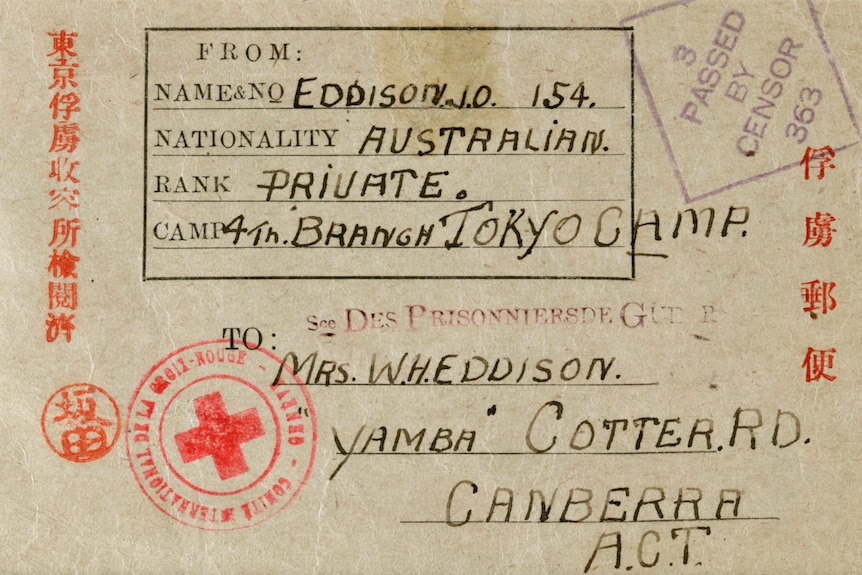 東京俘虜収容所検閲済
坂田
FROM:
NAME&NO EDDISON.J.O. 154.
NATIONALITY AUSTRALIAN.
RANK PRIVATE.
CAMP 4Th. BRANCH TOKYO CAMP.
3
PASSED
BY
CENSOR
363
俘虜郵便
Sce DES PRISONNIERS DE
TO:
MRS. W.H. EDDISON.
"YAMBA" COTTER. RD.
CANBERRA
A.C.T.
COMITÉ INTERNATIONAL DE LA CROIX-ROUGE - GENÈVE -